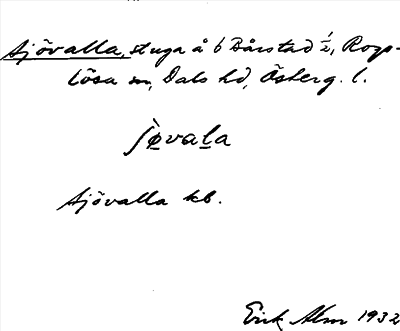 Sjövalla, stuga å 6 Bårstad 1/2, Rogs-
lösa sn, Dals hd, Österg. l.
ʃø̀vala
Sjövalla kb.
Erik Alm 1932